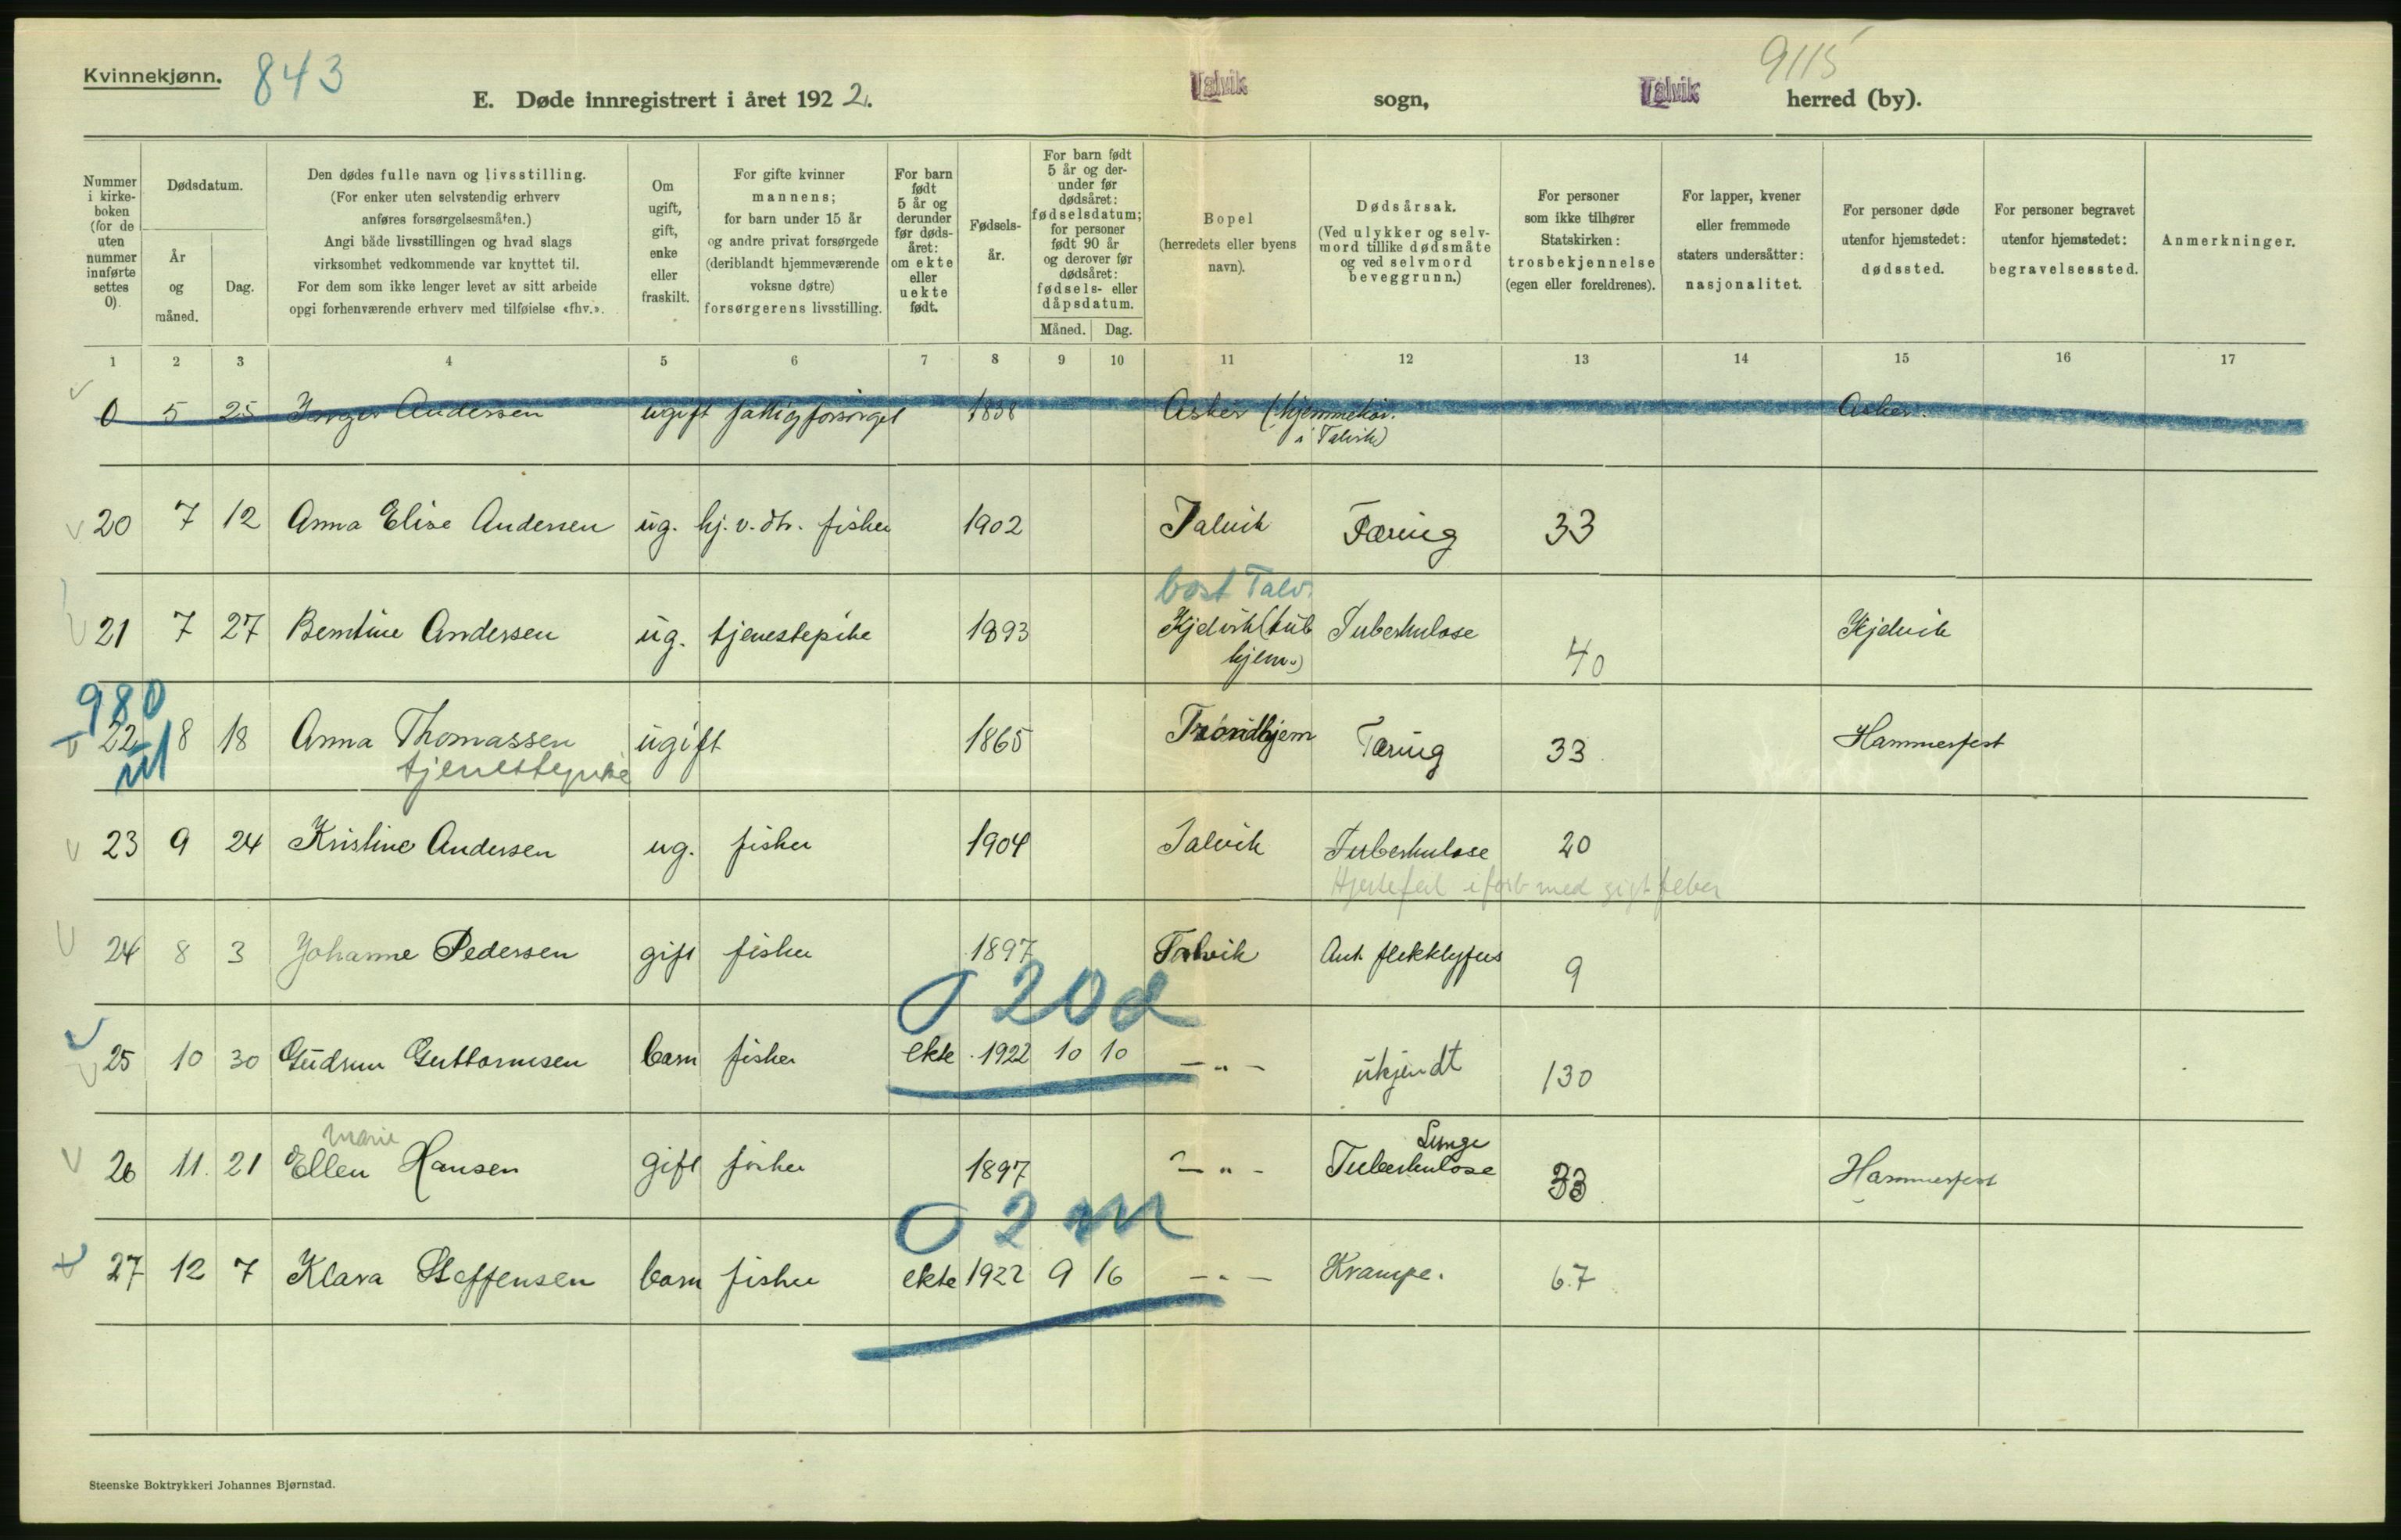 Kvinnekjønn.
843
9115
E. Døde innregistrert i året 1922.
Talvik sogn,
Talvik herred (by).
Nummer i kirkeboken (for de uten nummer innførte settes 0).
Dødsdatum.
År og måned.
Dag.
Den dødes fulle navn og livsstilling.
(For enker uten selvstendig erhverv
anføres forsørgelsesmåten.)
Angi både livsstillingen og hvad slags
virksomhet vedkommende var knyttet til.
For dem som ikke lenger levet av sitt arbeide
opgi forhenværende erhverv med tilføielse «fhv.».
Om ugift, gift, enke eller fraskilt.
For gifte kvinner
mannens;
for barn under 15 år
og andre privat forsørgede
(deriblandt hjemmeværende
voksne døtre)
forsørgerens livsstilling.
For barn født 5 år og derunder før dødsåret: om ekte eller uekte født.
Fødselsår.
For barn født 5 år og derunder før dødsåret: fødselsdatum; for personer født 90 år og derover før dødsåret: fødsels- eller dåpsdatum.
Måned.
Dag.
Bopel
(herredets eller byens
navn).
Dødsårsak.
(Ved ulykker og selvmord tillike dødsmåte
og ved selvmord
beveggrunn.)
For personer
som ikke tilhører
Statskirken:
trosbekjennelse
(egen eller foreldrenes).
For lapper, kvener
eller fremmede
staters undersåtter:
nasjonalitet.
For personer døde
utenfor hjemstedet:
dødssted.
For personer begravet
utenfor hjemstedet:
begravelsessted.
Anmerkninger.
1 2 3 4 5 6 7 8 9 10 11 12 13 14 15 16 17
0 5 25 Inger Andersen ugift fattigforsørget 1838 Asker (hjemmehør. Asker.
i Talvik)
20 7 12 Anna Elise Andersen ug. hj. v. dtr. fisker 1902 Talvik Tæring 33
bost Talv.
21 7 27 Berntine Andersen ug. tjenestepike 1893 Kjelvik (tub Tuberkulose 40 Kjelvik
hjem.)
980
22 8 18 Anna Thomassen ugift 1865 Trondhjem Tæring 33 Hammerfest
tjenestepike
23 9 24 Kristine Andersen ug. fisker 1904 Talvik Tuberkulose 20
Hjertefeil i forb med gigtfeber
24 8 3 Johanne Pedersen gift fisker 1897 Talvik Ant. flekktyfus 9
0 20 d
25 10 30 Gudrun Guttormsen barn fisker ekte 1922 10 10 -"- ukjendt 130
marie
Lunge
26 11. 21 Ellen Hansen gift fisker 1897 -"- Tuberkulose 33 Hammerfest
0 2 m
27 12 7 Klara Steffensen barn fisker ekte 1922 9 16 -"- Krampe. 67
Steenske Boktrykkeri Johannes Bjørnstad.